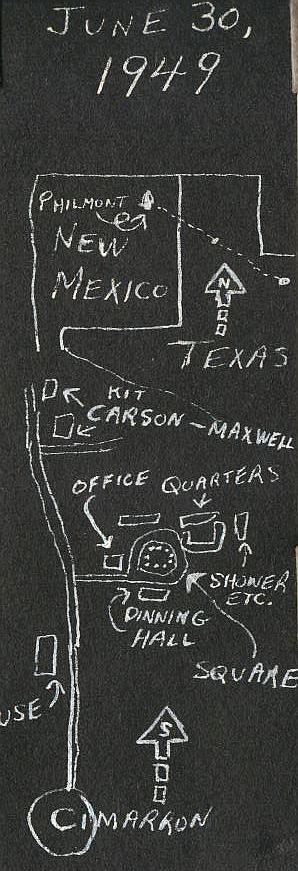 JUNE 30,
1949
PHILMONT
NEW
MEXICO
N
TEXAS
KIT
CARSON - MAXWELL
OFFICE QUARTERS
SHOWER
ETC.
DINNING
HALL
SQUARE
USE
S
CIMARRON